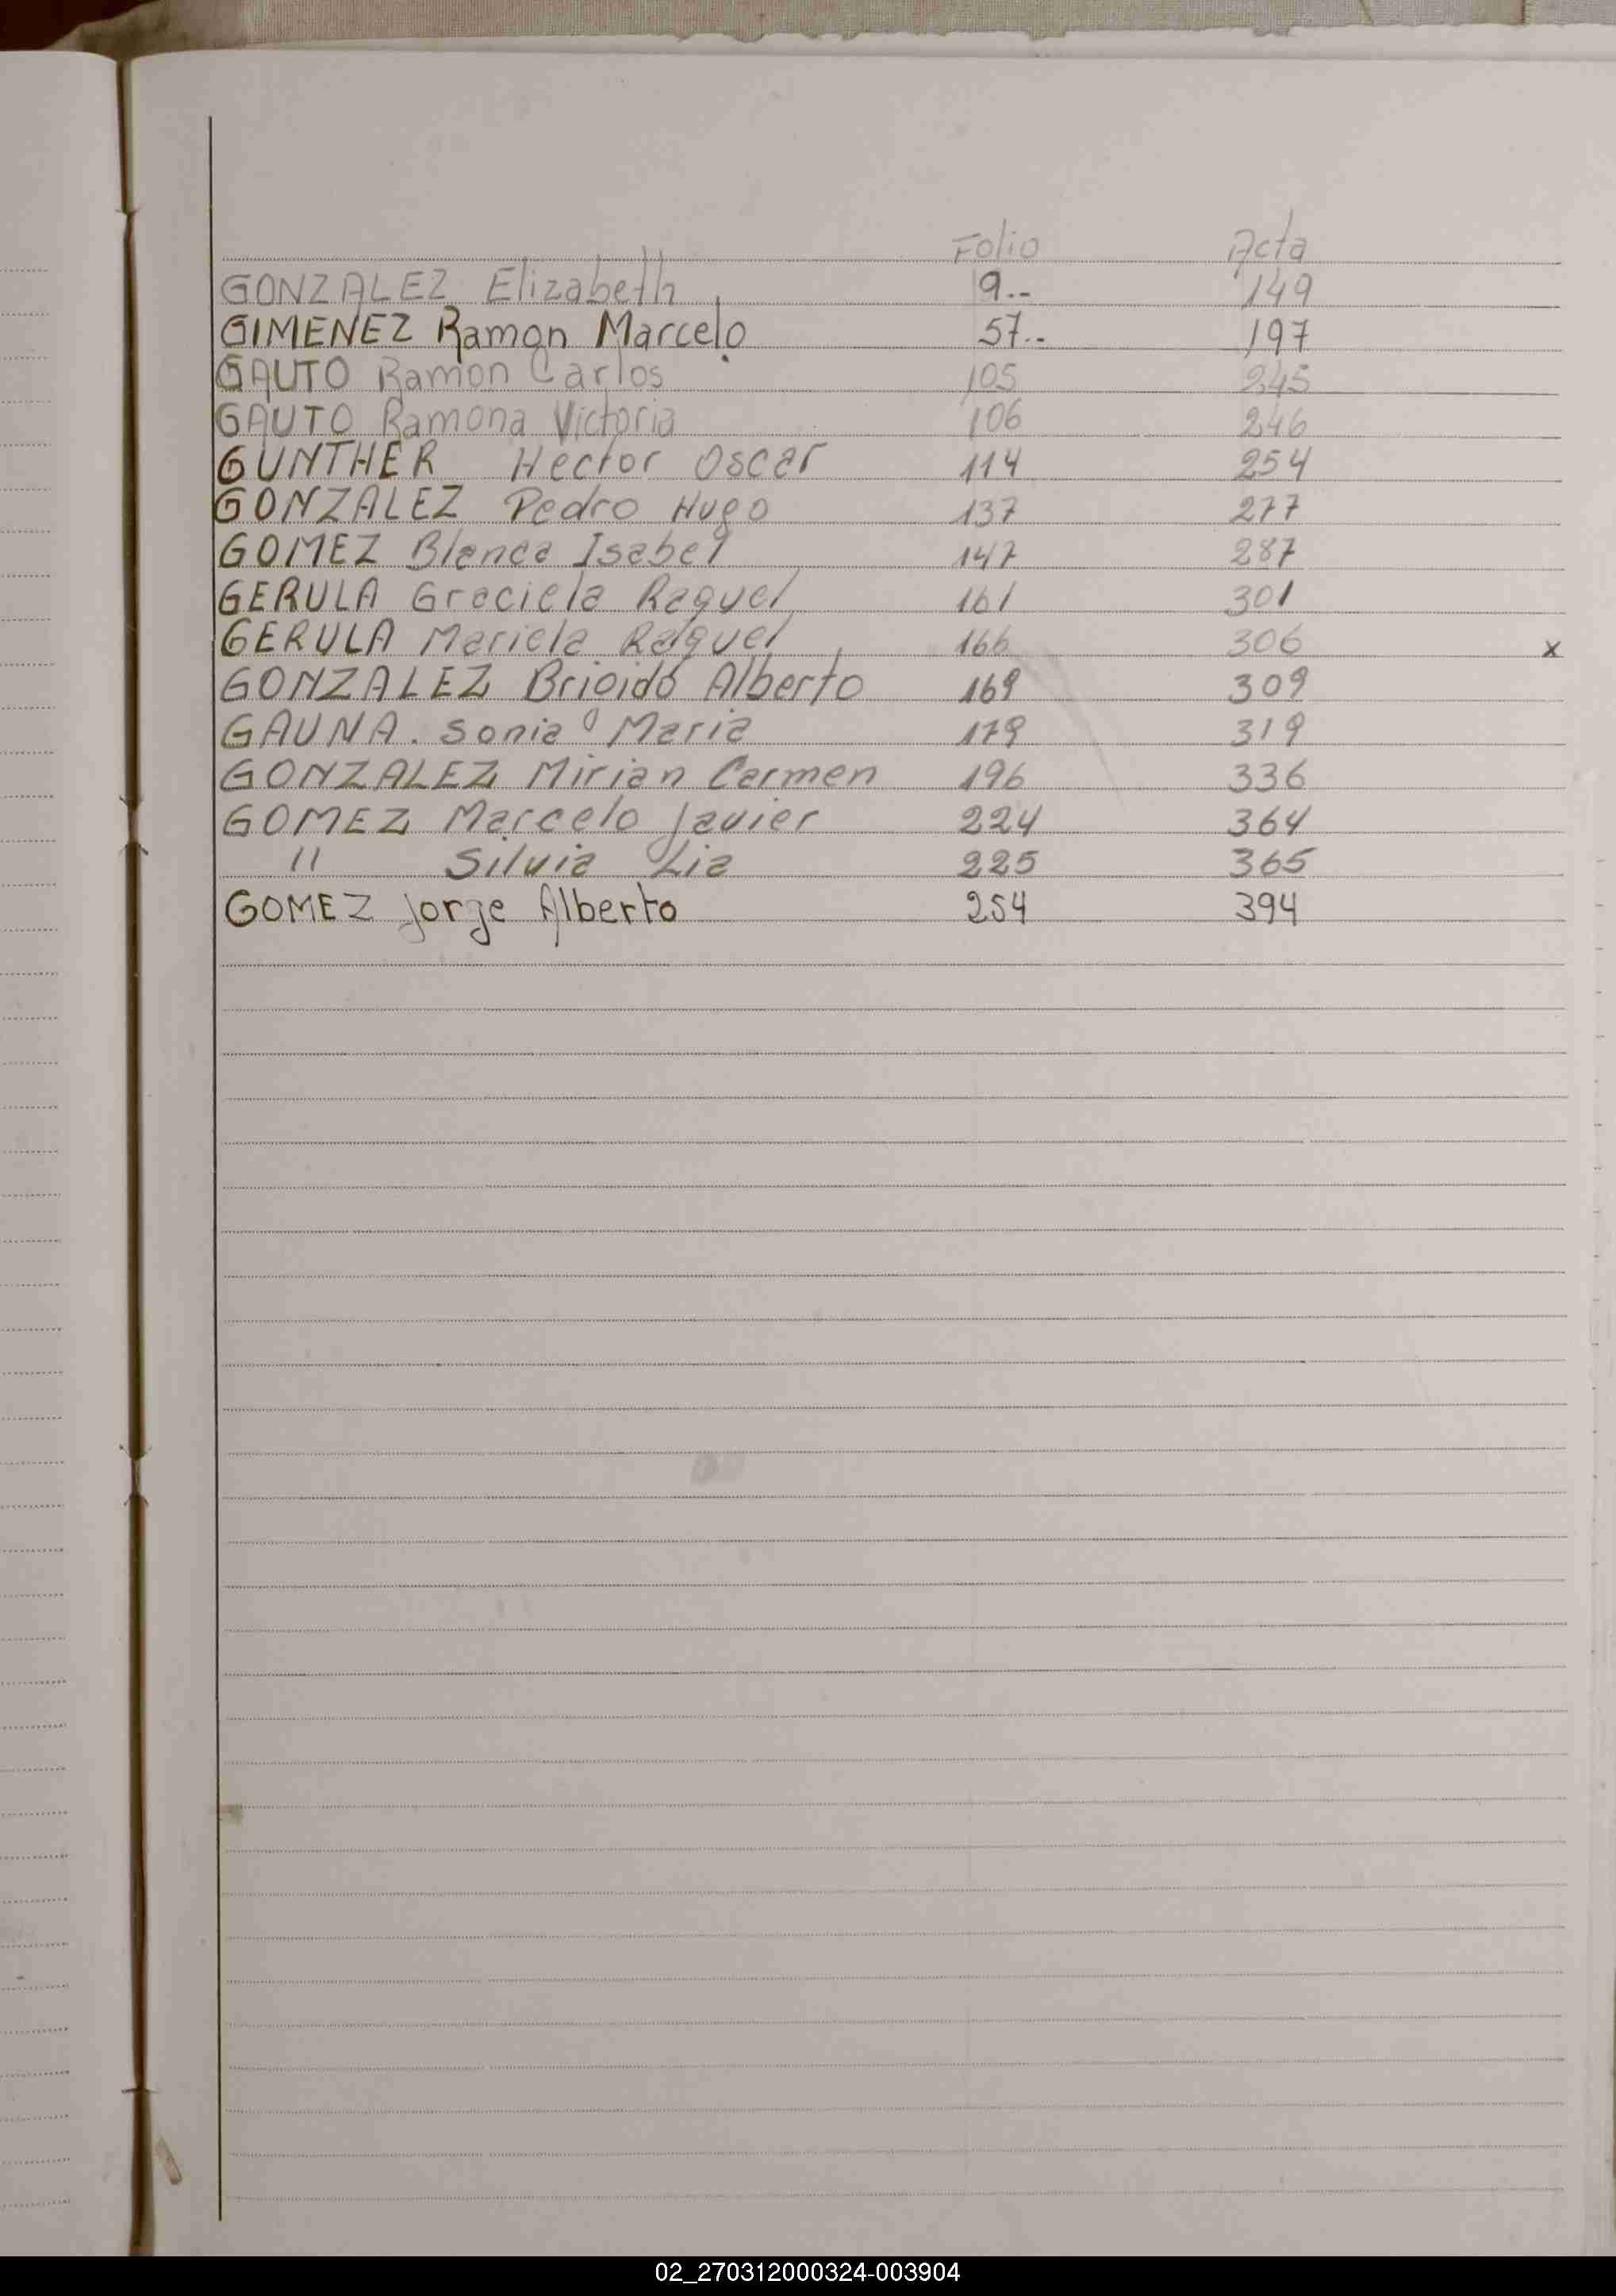 Folio Acta
GONZALEZ Elizabeth 9.- 149
GIMENEZ Ramon Marcelo 57.- 197
GAUTO Ramon Carlos 105 245
GAUTO Ramona Victoria 106 246
GUNTHER Hector Oscar 114 254
GONZALEZ Pedro Hugo 137 277
GOMEZ Blanca Isabel 147 287
GERULA Graciela Raquel 161 301
GERULA Mariela Raquel 166 306 x
GONZALEZ Brigido Alberto 169 309
GAUNA. Sonia Maria 179 319
GONZALEZ Mirian Carmen 196 336
GOMEZ Marcelo Javier 224 364
" Silvia Lia 225 365
GOMEZ Jorge Alberto 254 394
02_270312000324-003904